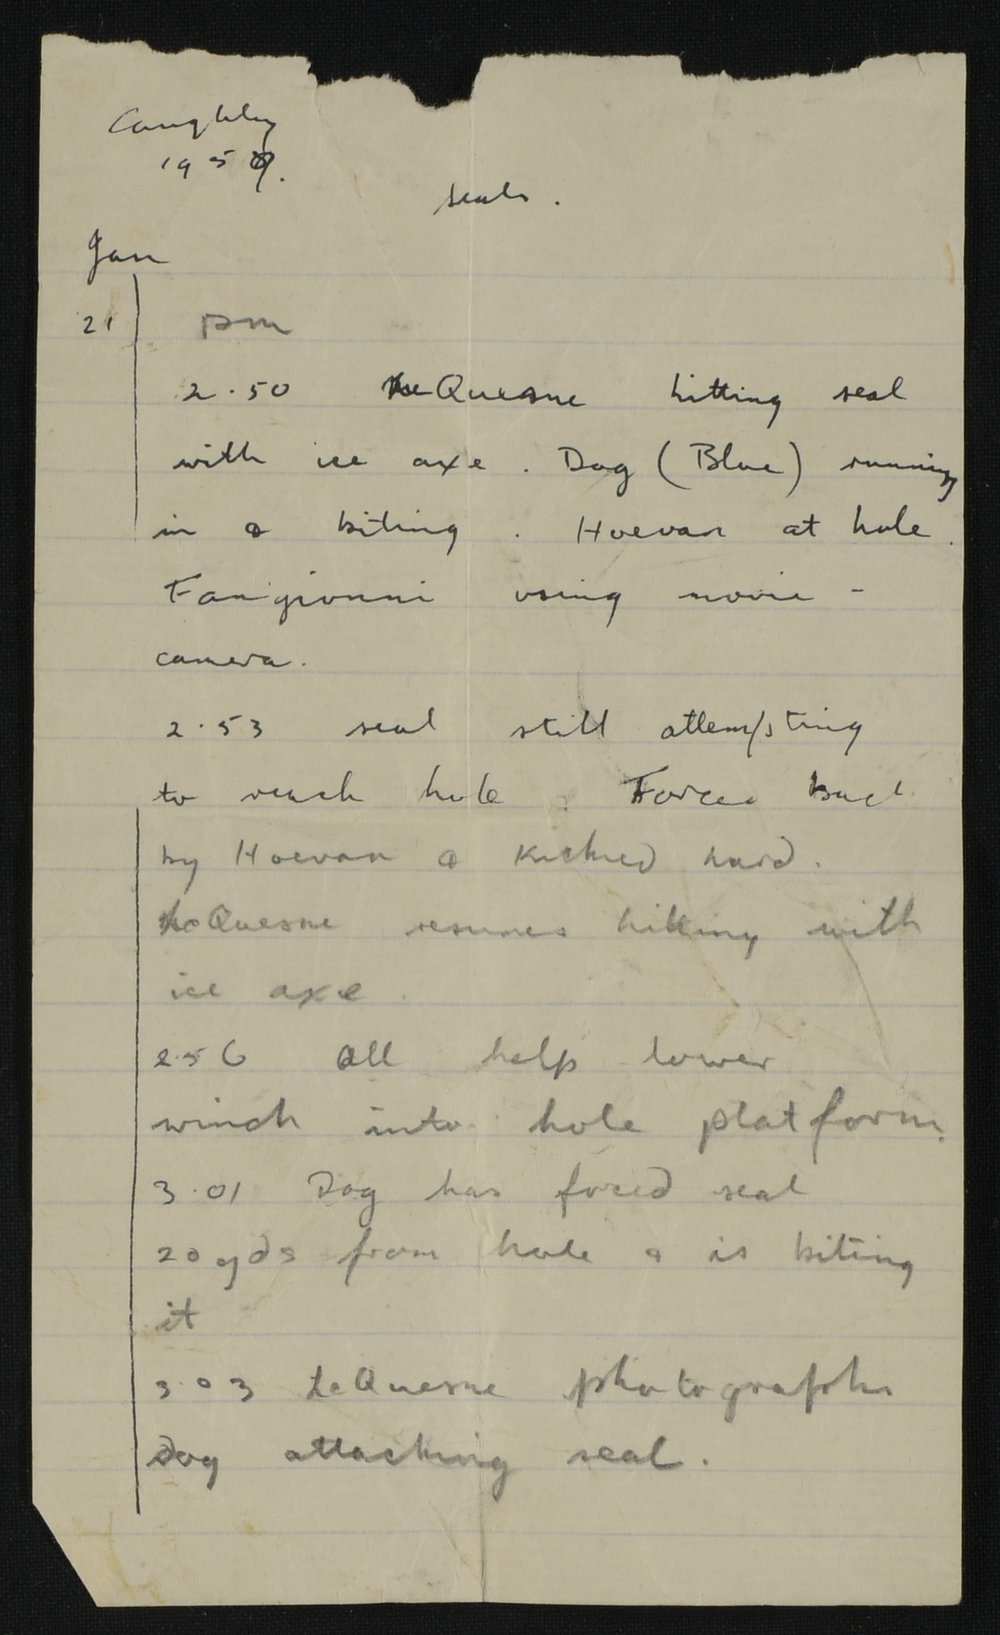 Caughley
1959.
seals.
Jan
21 pm
2.50 LeQuesne hitting seal
with ice axe. Dog (Blue) running
in & biting. Hoevan at hole.
Fangionni using movie-
camera.
2.53 seal still attempting
to reach hole. Forced back
by Hoevan & kicked hard.
LeQuesne resumes hitting with
ice axe.
2.56 All help lower
winch into hole platform.
3.01 Dog has forced seal
20 yds from hole & is biting
it
3.03 LeQuesne photographs
Dog attacking seal.